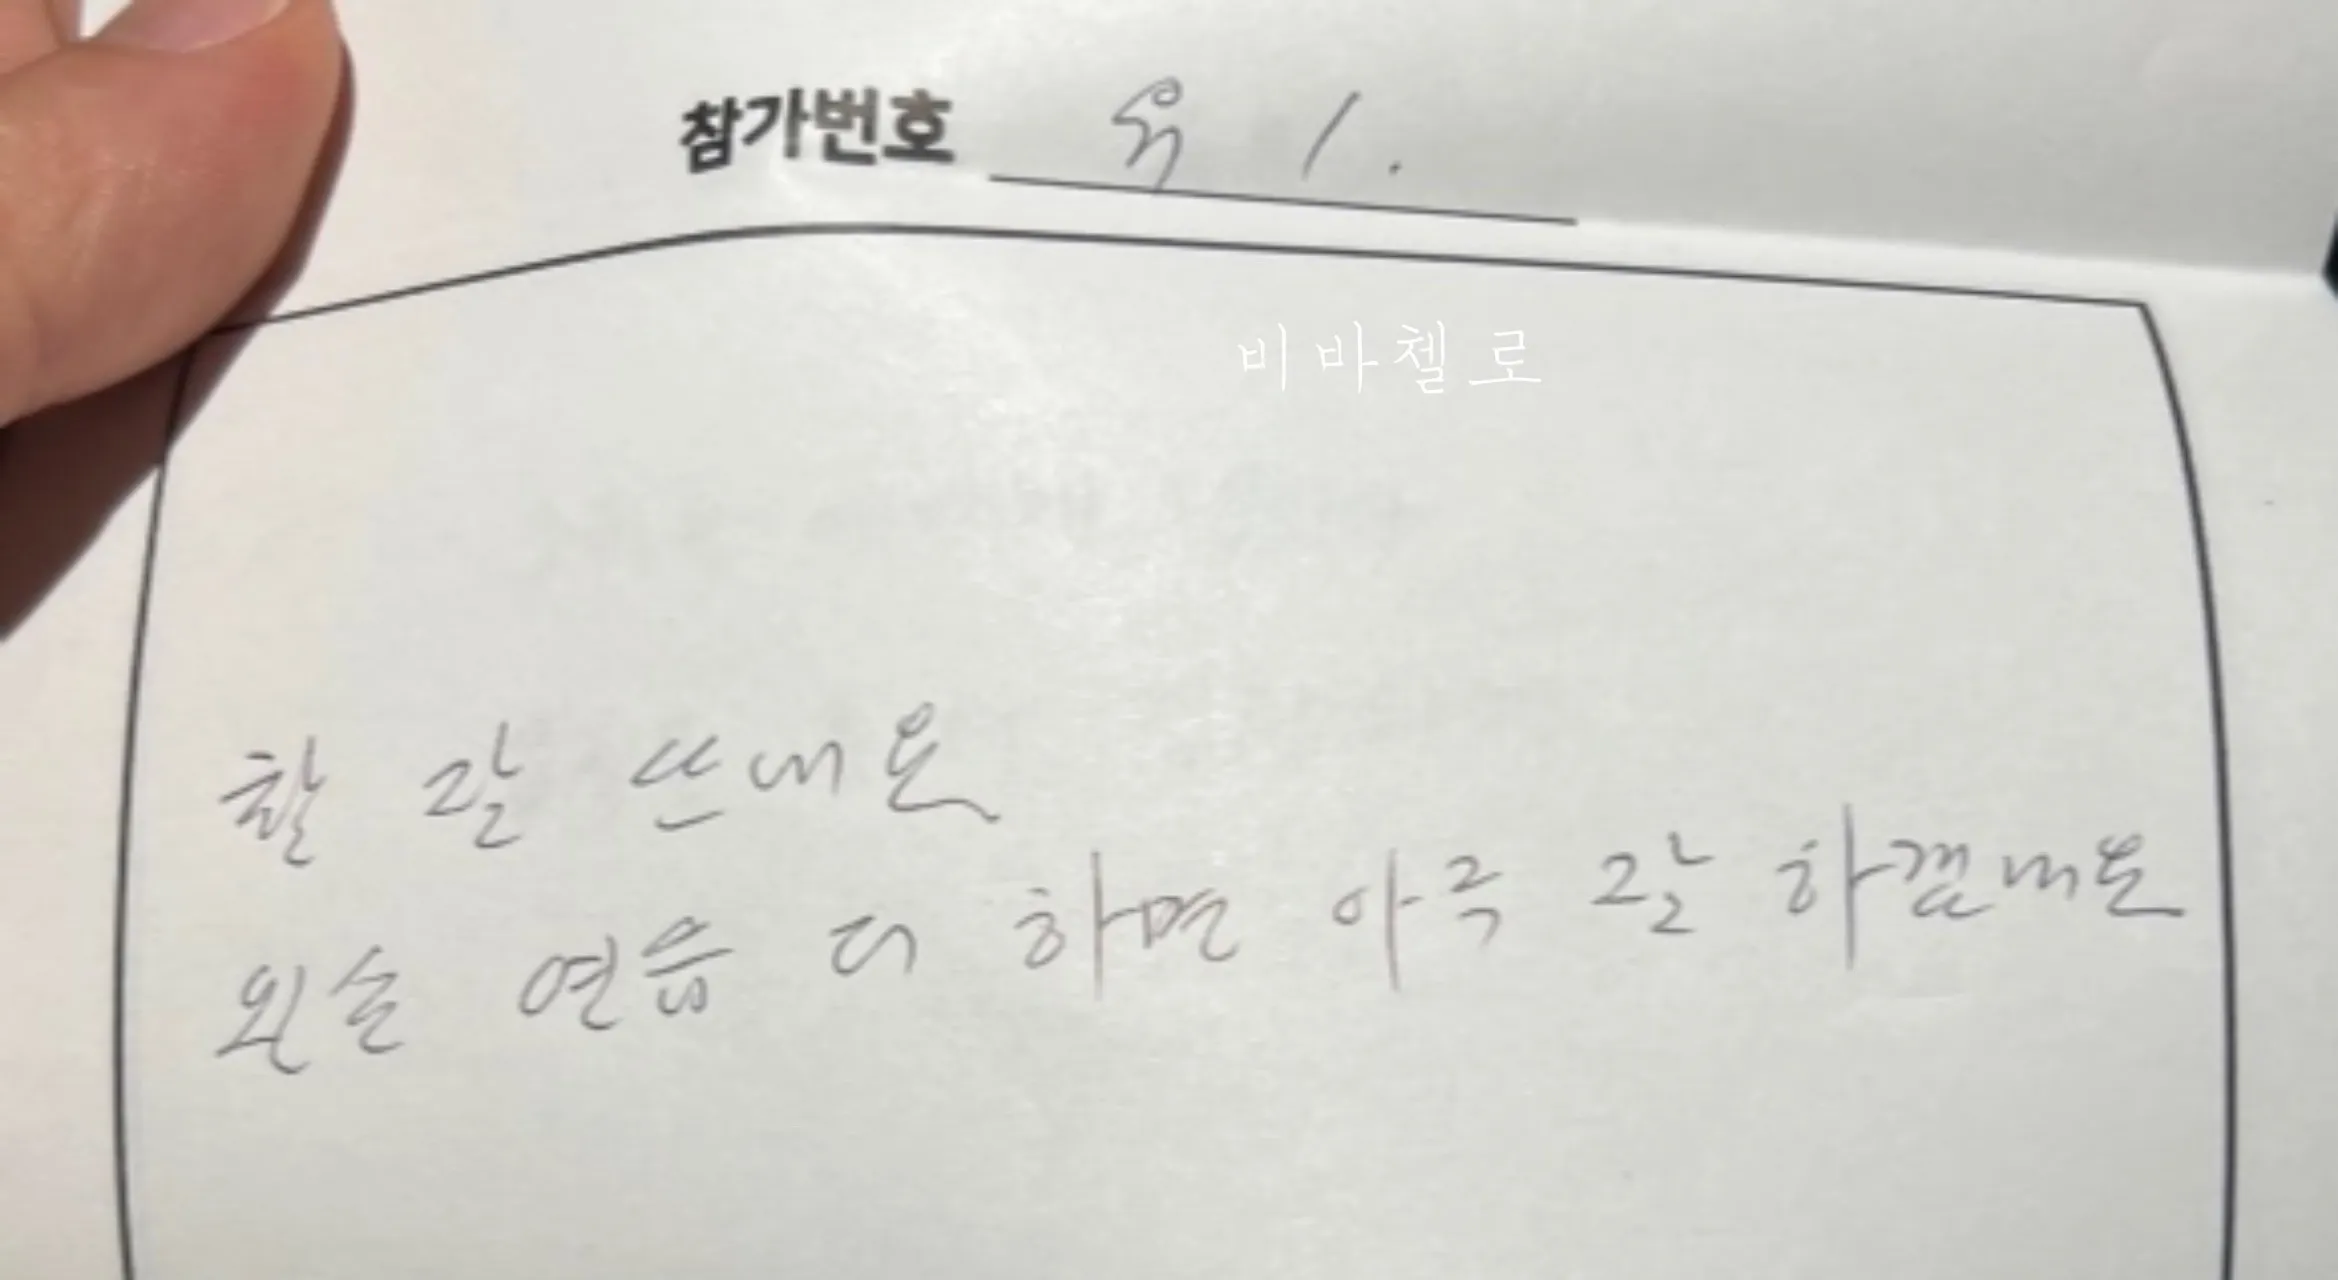 참가번호 유 1.
비바첼로
활 잘 쓰내요
왼손 연습 더 하면 아주 잘 하겠내요